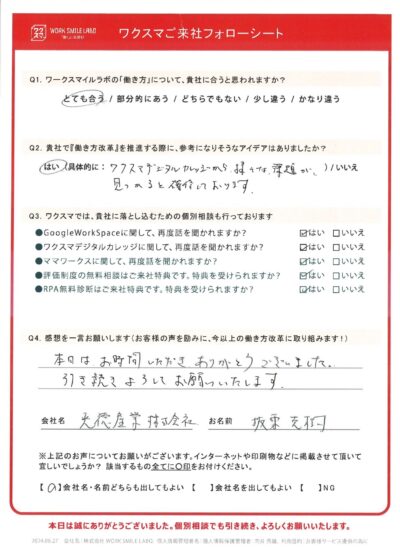 ワクスマ WORK SMILE LABO
ワクスマご来社フォローシート
Q1. ワークスマイルラボの「働き方」について、貴社に合うと思われますか?
とても合う / 部分的にあう / どちらでもない / 少し違う / かなり違う
Q2. 貴社で『働き方改革』を推進する際に、参考になりそうなアイデアはありましたか?
はい (具体的に: ワクスマデジタルカレッジから様々な課題が、 ) / いいえ
見つめると確信しております。
Q3. ワクスマでは、貴社に落とし込むための個別相談も行っております
●GoogleWorkSpaceに関して、再度話を聞かれますか? ☑はい □いいえ
●ワクスマデジタルカレッジに関して、再度話を聞かれますか? ☑はい □いいえ
●ママワークスに関して、再度話を聞かれますか? ☑はい □いいえ
●評価制度の無料相談はご来社特典です。特典を受けられますか? ☑はい □いいえ
●RPA無料診断はご来社特典です。特典を受けられますか? ☑はい □いいえ
Q4. 感想を一言お願いします(お客様の声を励みに、今以上の働き方改革に取り組みます!)
本日はお時間いただきありがとうございました。
引き続きよろしくお願いいたします。
会社名 産業株式会社 お名前 坂東
※上記のお声についてお願いがございます。インターネットや印刷物などに掲載させて頂いて
宜しいでしょうか? 該当するもの全てに○印をお付けください。
【○】会社名・名前どちらも出してもよい 【 】会社名を出してもよい 【 】NG
本日は誠にありがとうございました。個別相談でも引き続き、よろしくお願いいたします。
2024.09.27 会社名:株式会社 WORK SMILE LABO 個人情報管理者名:個人情報保護管理者